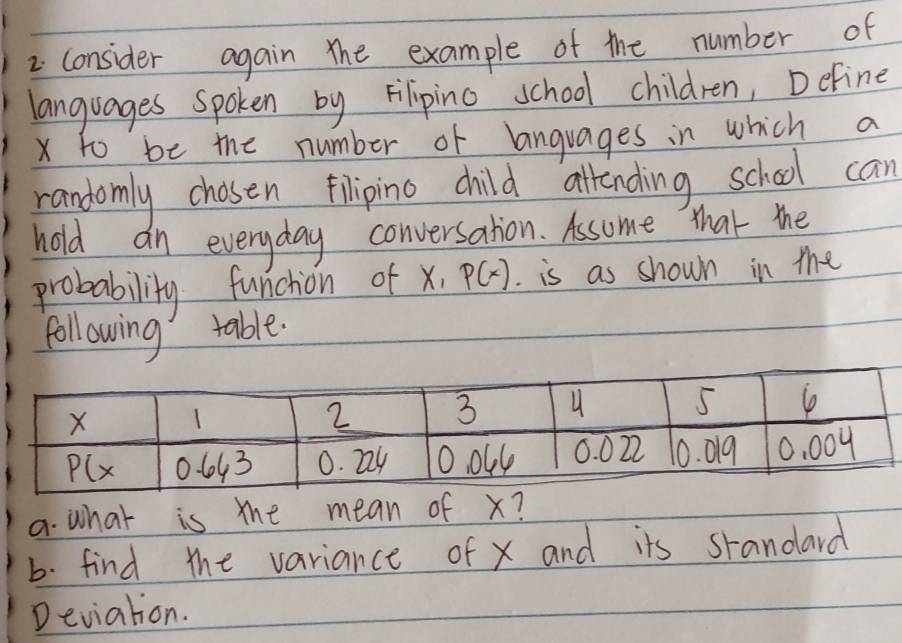 2. Consider again the example of the number of
languages spoken by Filipino school children, Define
X to be the number of languages in which a
randomly chosen Filipino child attending school can
hold an everyday conversation. Assume that the
probability function of X, P(x). is as shown in the
following table.
X 1 2 3 4 5 6
P(x 0.643 0.224 0.066 0.022 0.019 0.004
a. what is the mean of X?
b. find the variance of X and its standard
Deviation.